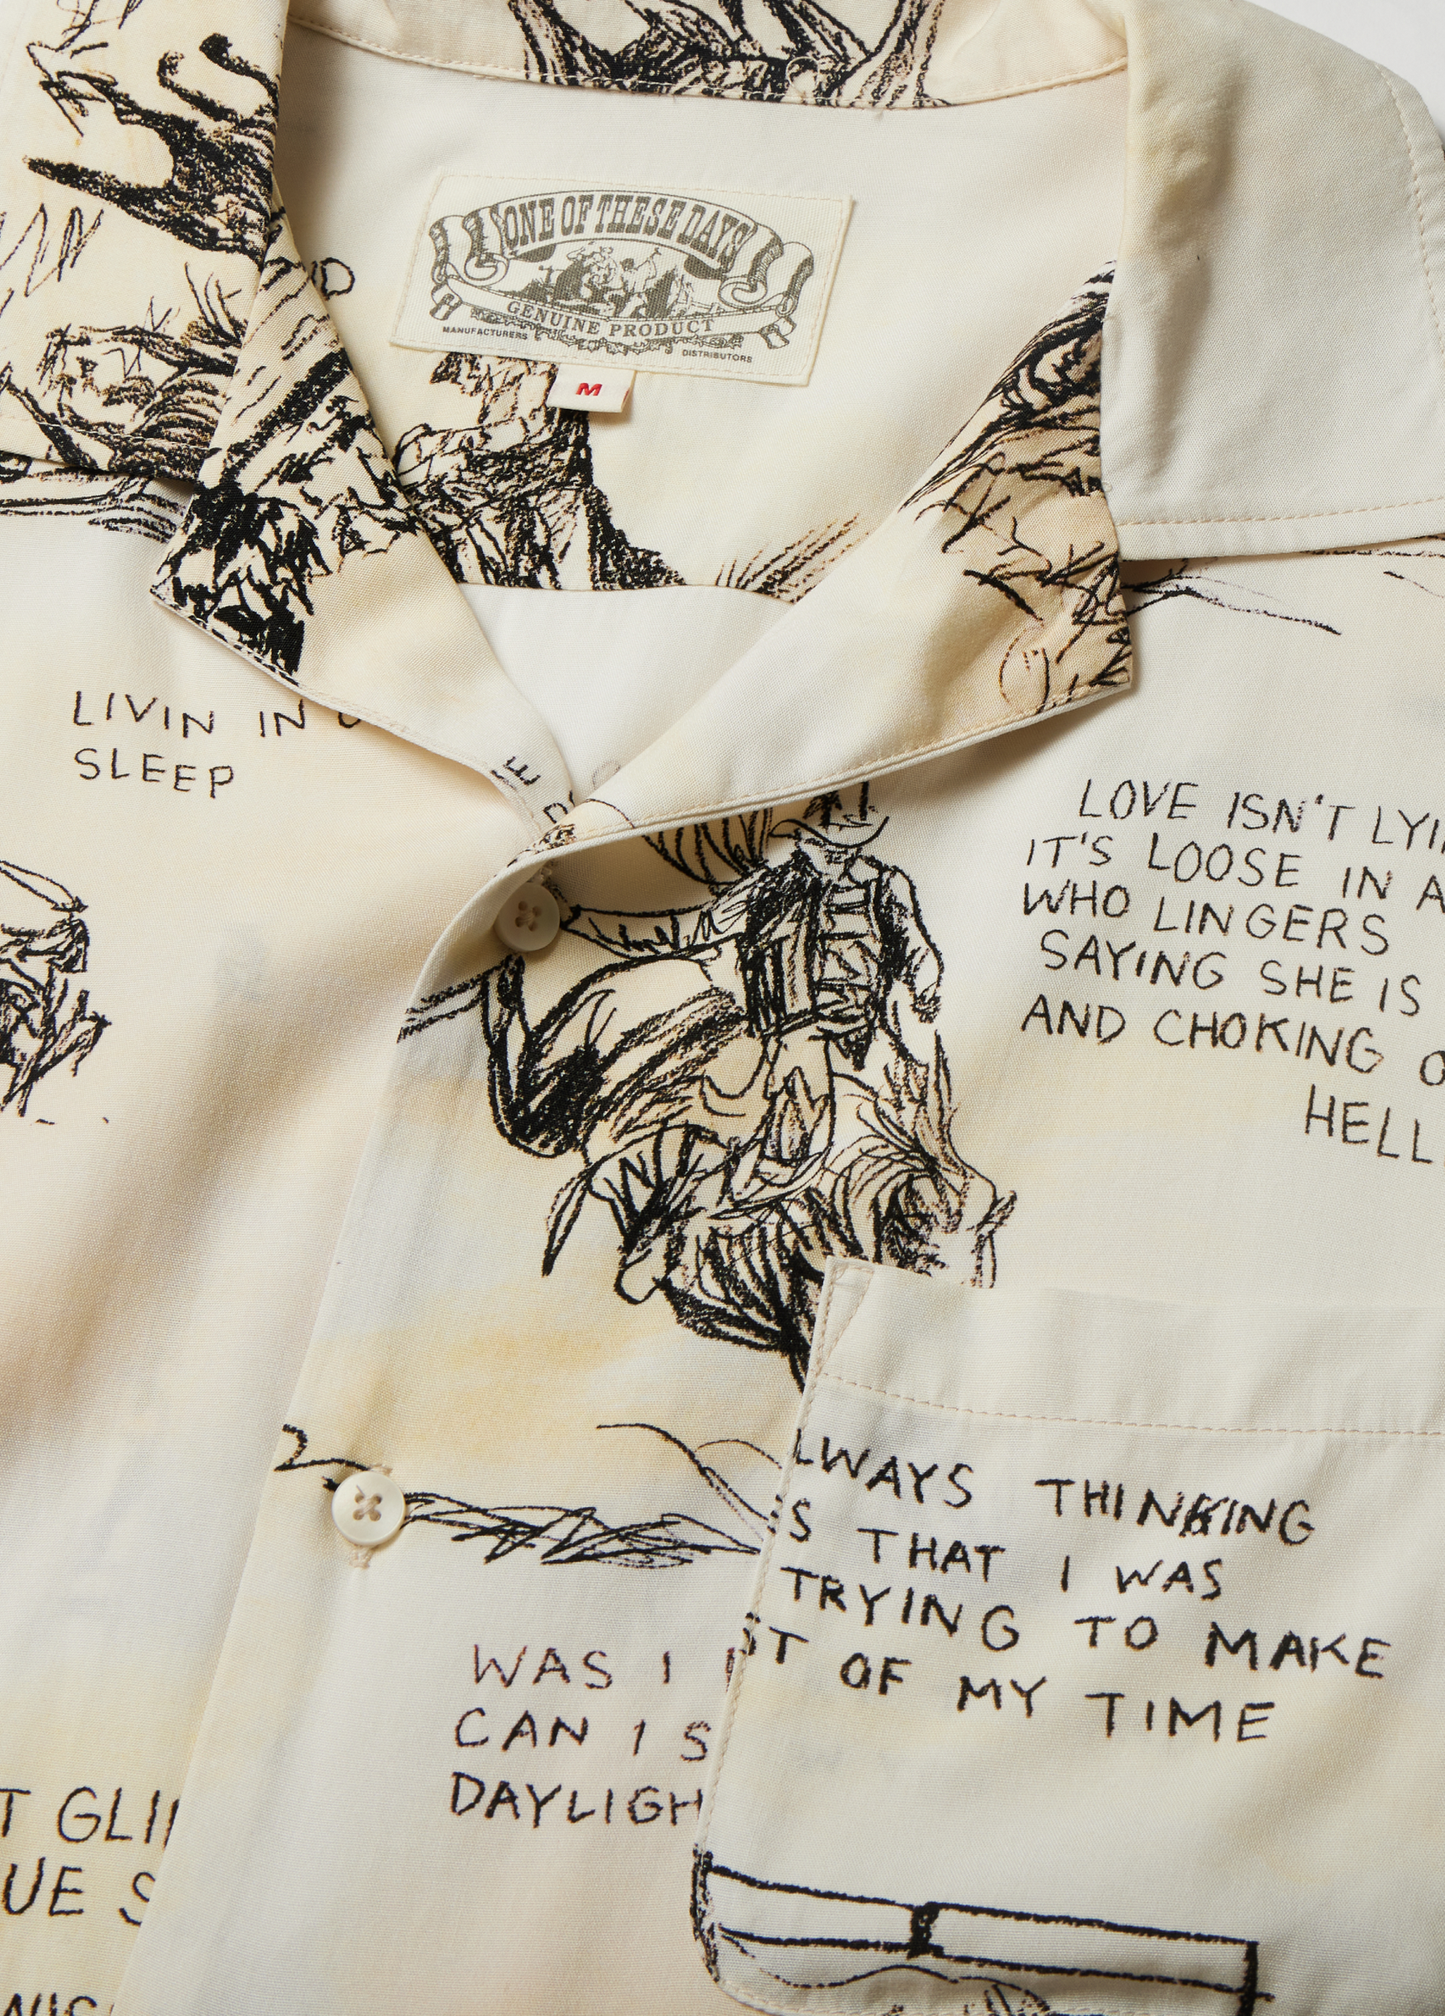 ONE OF THESE DAYS
GENUINE PRODUCT
MANUFACTURERS
DISTRIBUTORS
M
LIVIN IN
SLEEP
LOVE ISN'T LYI
IT'S LOOSE IN A
WHO LINGERS
SAYING SHE IS
AND CHOKING O
HELL
LWAYS THINKING
S THAT I WAS
TRYING TO MAKE
ST OF MY TIME
WAS I
CAN I S
DAYLIGH
T GLI
UE S